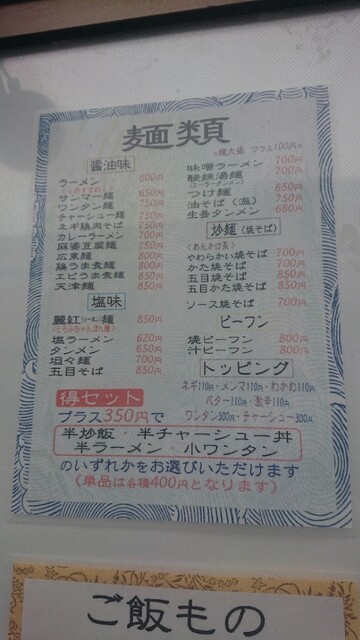 麺類
醤油味
ラーメン 600円
サンマー麺 650円
ワンタン麺 750円
チャーシュー麺 750円
ネギ鶏肉そば 750円
カレーラーメン 700円
麻婆豆腐麺 750円
広東麺 800円
鶏うま煮麺 800円
エビうま煮麺 850円
天津麺 850円
塩味
850円
塩ラーメン 620円
タンメン 650円
坦々麺 700円
五目そば 850円
麺大盛 プラス100円
味噌ラーメン 700円
酸辣湯麺 700円
(スーラータンメン)
つけ麺 650円
油そば(温) 750円
生姜タンメン 680円
炒麺(焼そば)
<あんかけ系>
やわらかい焼そば 700円
かた焼そば 700円
五目焼そば 850円
五目かた焼そば 850円
ソース焼そば 700円
ビーフン
焼ビーフン 800円
汁ビーフン 800円
トッピング
ネギ110円・メンマ110円・わかめ110円
バター110円・激辛110円
ワンタン300円・チャーシュー300円
得セット
プラス350円で
半炒飯・半チャーシュー丼
半ラーメン・小ワンタン
のいずれかをお選びいただけます
(単品は各種400円となります)
ご飯もの